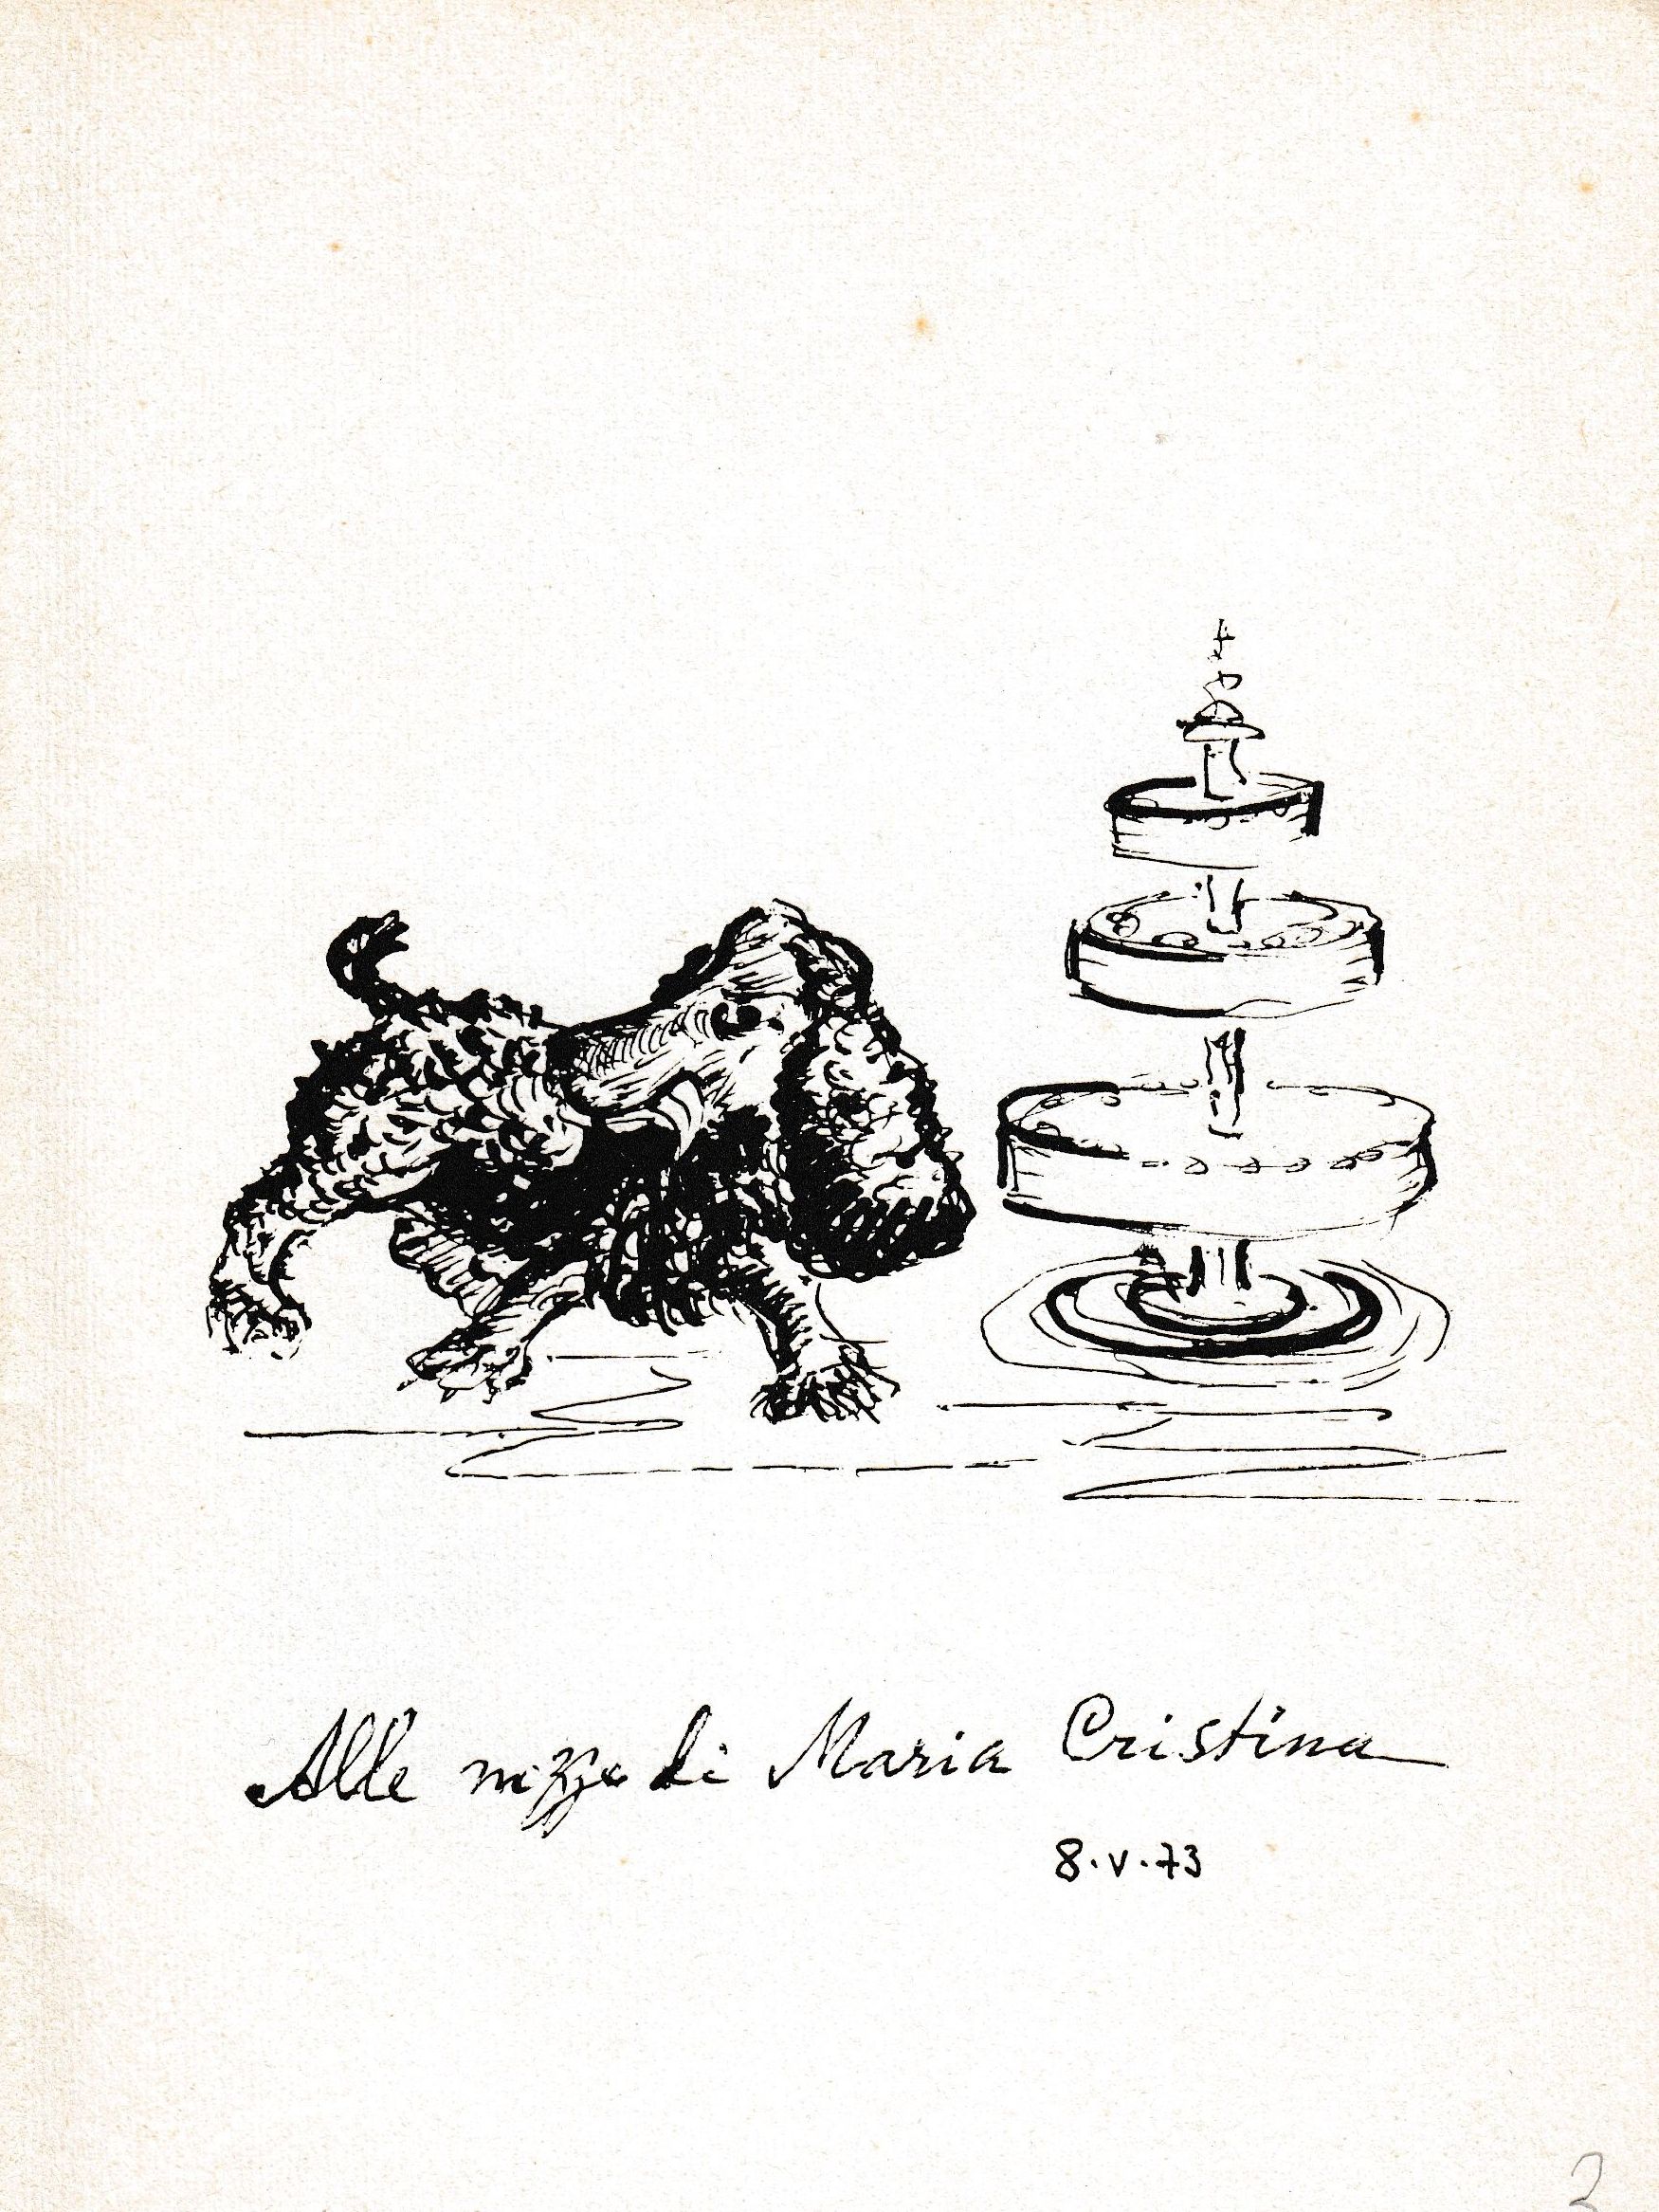 Alle nozze di Maria Cristina
8.V.73
2